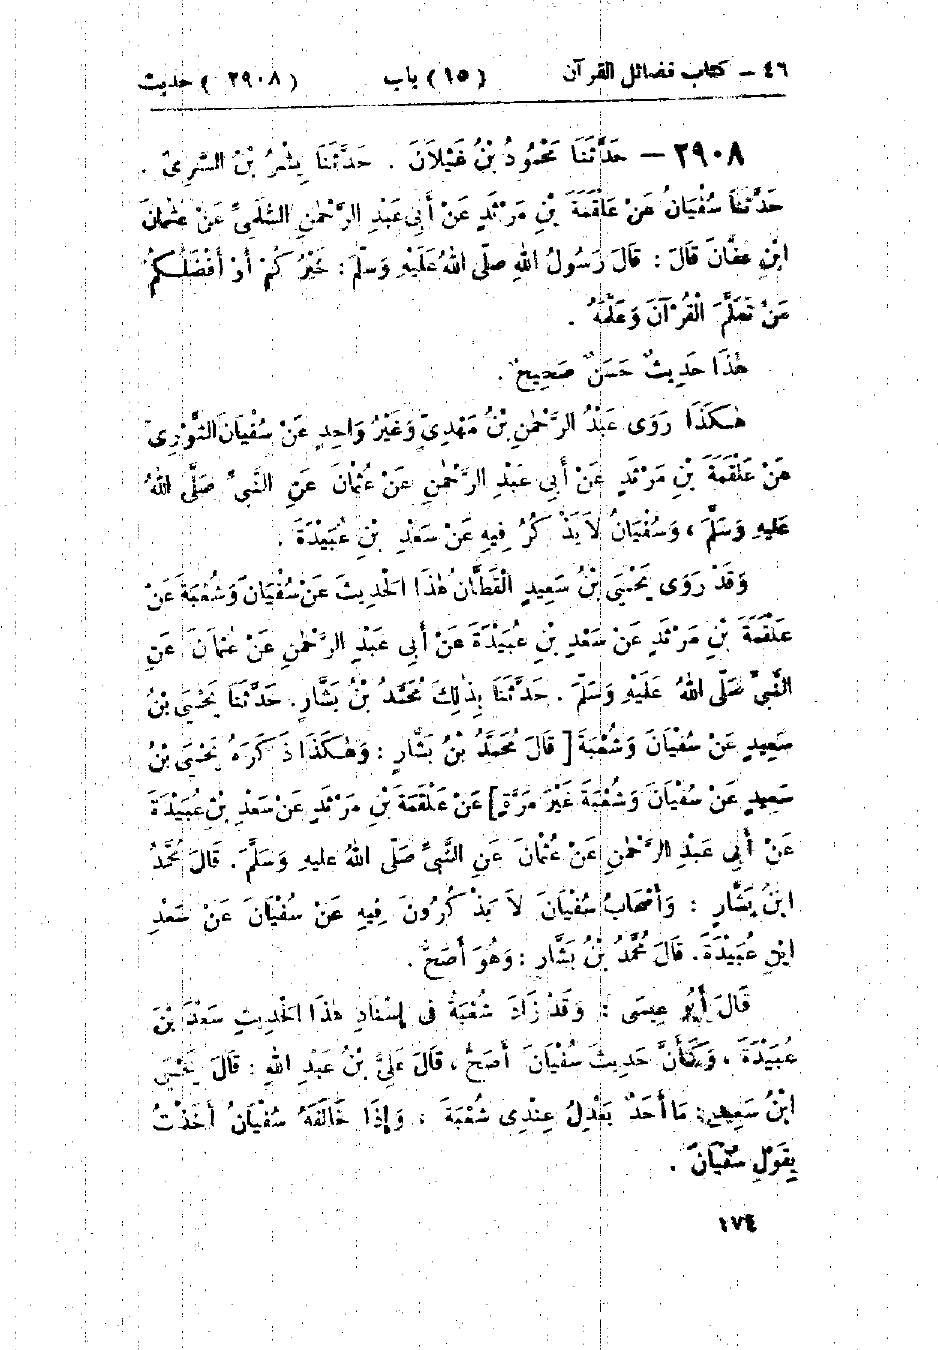 ٤٦ – كتاب فضائل القرآن (١٥) باب (٢٩٠٨) حديث
٢٩٠٨ – حَدَّثَنَا مَحْمُودُ بْنُ غَيْلَانَ . حَدَّثَنَا بِشْرُ بْنُ السَّرِيِّ .
حَدَّثَنَا سُفْيَانُ عَنْ عَلْقَمَةَ بْنِ مَرْثَدٍ عَنْ أَبِي عَبْدِ الرَّحْمٰنِ السُّلَمِيِّ عَنْ عثْمانَ
ابْنِ عفَّانَ قَالَ : قَالَ رَسُولُ اللهِ صلّى اللهُ عَلَيْهِ وَسلّمَ : خَيْرُ كُمْ أَوْ أَفْضَلُـكُمْ
مَنْ تَعَلَّمَ الْقُرْآنَ وَعَلَّمَهُ .
هٰذَا حَدِيثٌ حَسَنٌ صَحِيحٌ .
هٰـكَذَا رَوَى عَبْدُ الرَّحْمٰنِ بْنُ مَهْدِيٍّ وَغَيْرُ وَاحِدٍ عَنْ سُفْيَانَ الثَّوْرِيِّ
عَنْ عَلْقَمَةَ بْنِ مَرْثَدٍ عَنْ أَبِي عَبْدِ الرَّحْمٰنِ عَنْ عُثْمَانَ عَنِ النَّبِيِّ صَلَّى اللهُ
عَلَيهِ وَسَلَّمَ ، وَسُفْيَانُ لَا يَذْكُرُ فِيهِ عَنْ سَعْدِ بْنِ عُبَيْدَةَ .
وَقَدْ رَوَى يَحْيَى بْنُ سَعِيدٍ الْقَطَّانُ هٰذَا الْحَدِيثَ عَنْ سُفْيَانَ وَشُعْبَةَ عَنْ
عَلْقَمَةَ بْنِ مَرْثَدٍ عَنْ سَعْدِ بْنِ عُبَيْدَةَ عَنْ أَبِي عَبْدِ الرَّحْمٰنِ عَنْ عثْمَانَ عَنِ
النَّبِيِّ صَلّى اللهُ عَلَيْهِ وَسَلّمَ . حَدَّثَنَا بِذٰلِكَ مُحَمَّدُ بْنُ بَشَّارٍ . حَدَّثَنَا يَحْيَى بْنُ
سَعِيدٍ عَنْ سُفْيَانَ وَشُعْبَةَ [ قَالَ مُحَمَّدُ بْنُ بَشَّارٍ : وَهٰـكَذَا ذَكَرَهُ يَحْيَى بْنُ
سَعِيدٍ عَنْ سُفْيَانَ وَشُعْبَةَ غَيْرَ مَرَّةٍ ] عَنْ عَلْقَمَةَ بْنِ مَرْثَدٍ عَنْ سَعْدِ بْنِ عُبَيْدَةَ
عَنْ أَبِي عَبْدِ الرَّحْمٰنِ عَنْ عُثْمَانَ عَنِ النَّبِيِّ صَلّى اللهُ عليهِ وَسَلَّمَ . قَالَ مُحَمَّدُ
ابْنُ بَشَّارٍ : وَأَصْحَابُ سُفْيَانَ لَا يَذْكُرُونَ فِيهِ عَنْ سُفْيَانَ عَنْ سَعْدِ
ابْنِ عُبَيْدَةَ . قَالَ مُحَمَّدُ بْنُ بَشَّارٍ : وَهُوَ أَصَحُّ .
قَالَ أَبُو عِيسَى : وَقَدْ زَادَ شُعْبَةُ فِي إِسْنَادِ هٰذَا الْحَدِيثِ سَعْدَ بْنَ
عُبَيْدَةَ ، وَكَأَنَّ حَدِيثَ سُفْيَانَ أَصَحُّ ، قَالَ عَلِيُّ بْنُ عَبْدِ اللهِ : قَالَ يَحْيَى
ابْنُ سَعِيدٍ : مَا أَحَدٌ يَعْدِلُ عِنْدِي شُعْبَةَ ، وَإِذَا خَالَفَهُ سُفْيَانُ أَخَذْتُ
بِقَوْلِ سُفْيَانَ .
١٧٤